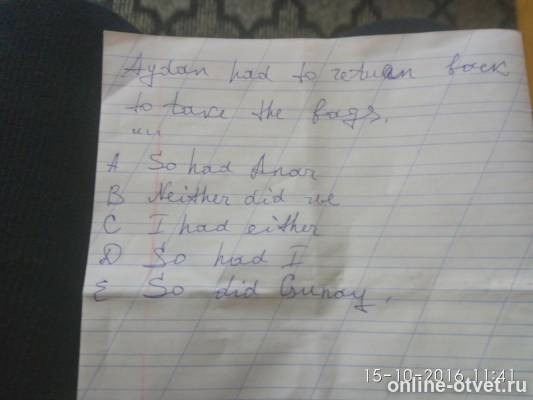 Aydan had to return back
to take the bags.
" "
A So had Anar
B Neither did we
C I had either
D So had I
E So did Gunay.
15-10-2016 11:41
online-otvet.ru